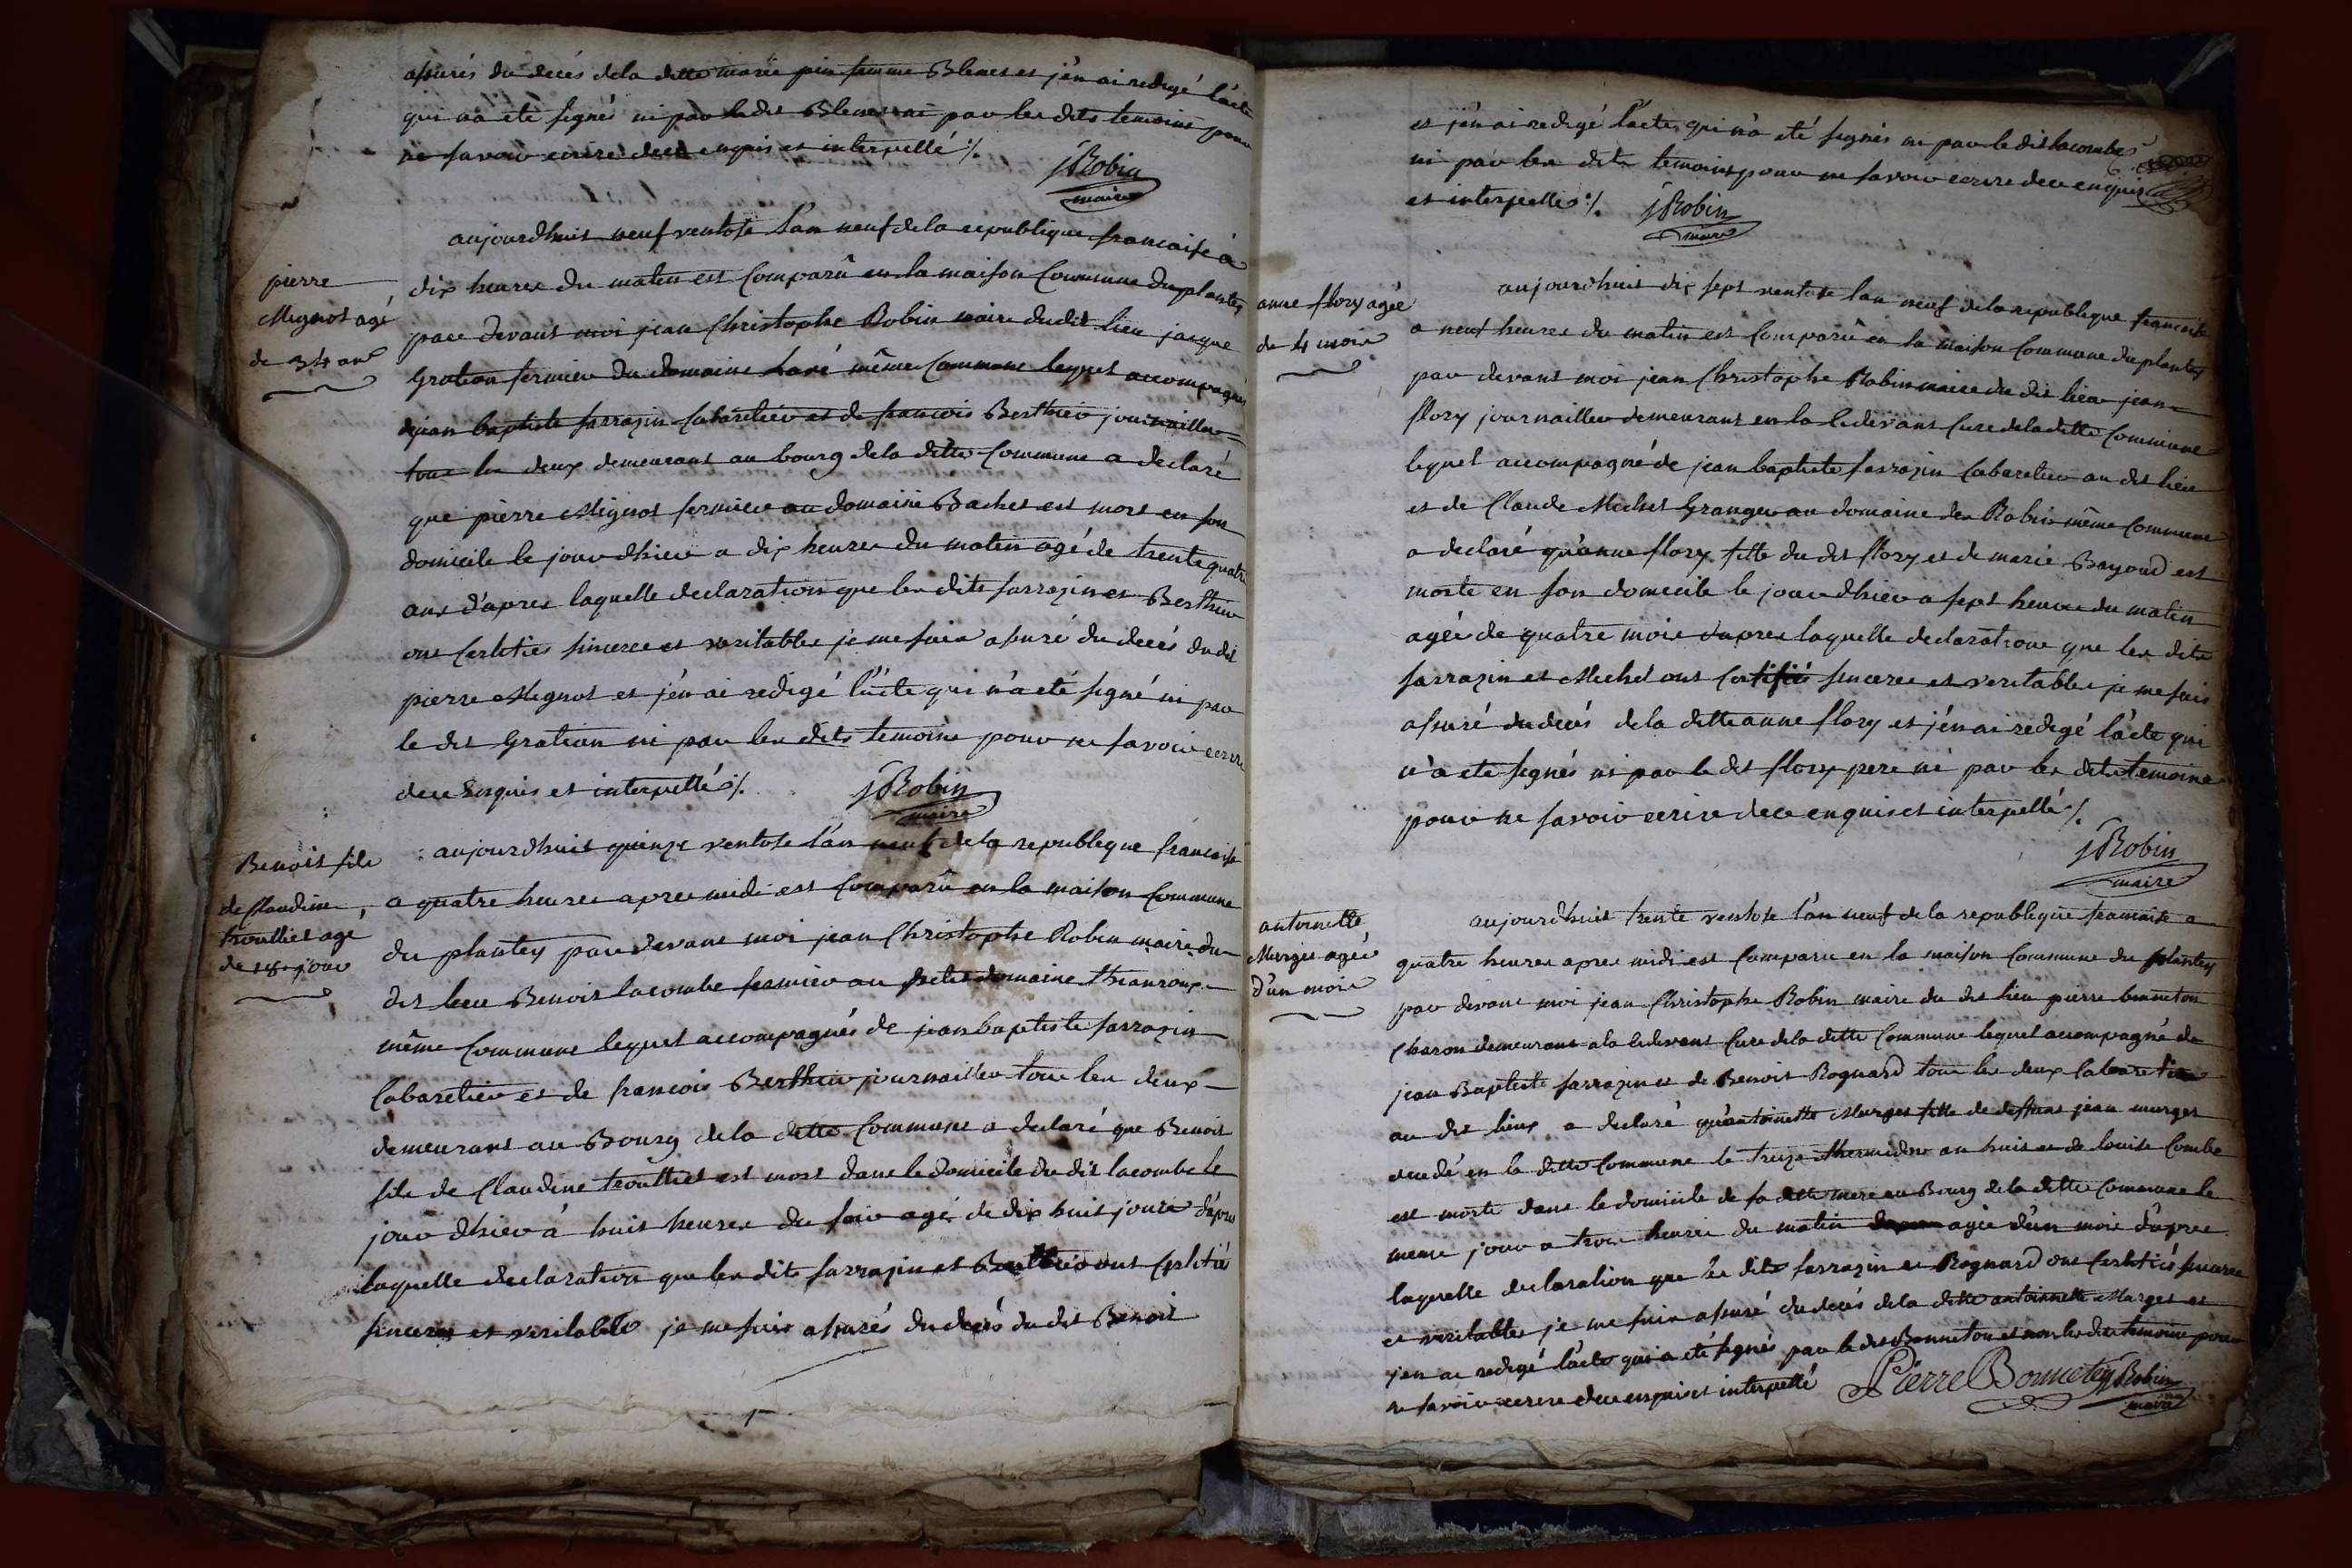 assurés du decés dela ditte marie pin femme Blenet et j'en ai redigé l'acte
qui n'a eté signés ni par ledit Blenet ni par les dits temoins pour
ne savoir ecrire dece enquis et interpellé ./.
JRobin
maire
pierre
Mignot agé
de 34 ans
aujourdhuit neuf ventose l'an neuf dela republique francaise à
dix heures du matin est Comparû en la maison Commune du plantey
par devant moi jean Christophe Robin maire dudit lieu jacque
Gration fermier du domaine même Commune lequel accompagnés
djean baptiste sarrazin Cabaretier et de francois Berthier journaillier
tous les deux demeurant au bourg dela ditte Commune a declaré
que pierre Mignot fermier au domaine Bachet est mort en son
domicile le jour dhier a dix heures du matin agé de trente quatre
ans d'apres laquelle declaration que les dits sarrazin et Berthier
ont Certifiés sinceres et veritables je me suis assuré du decés dudit
pierre Mignot et j'en ai redigé l'acte qui n'a eté signé ni par
le dit Gration ni par les dits temoins pour ne savoir ecrire
dece Enquis et interpellé ./.
JRobin
maire
Benoit fils
de Claudine
trouilliet agé
de 18 jour
aujourdhuit quinze ventose l'an neuf dela republique francaise
a quatre heures apres midi est Comparû en la maison Commune
du plantey par devant moi jean Christophe Robin maire du
dit lieu Benoit lacombe fermier au petit domaine
même Commune lequel accompagnés de jean baptiste sarrazin
Cabaretier et de francois Berthier journaillier tous les deux
demeurant au Bourg dela ditte Commune a declaré que Benoit
fils de Claudine trouilliet est mort dans le domicile du dit lacombe le
jour dhier à huit heures du soir agé de dix huit jours d'apres
laquelle declaration que les dits sarrazin et Berthier ont Certifié
sinceres et veritables je me suis assurés du decés du dit Benoit
et j'en ai redigé l'acte qui n'a eté signés ni par le dit lacombe
ni par les dits temoins pour ne savoir ecrire dece enquis
et interpellés ./. JRobin
maire
anne flory agée
de 4 mois
aujourdhuit dix sept ventose l'an neuf dela republique francaise
a neuf heures du matin est Comparû en la maison Commune du plantey
par devant moi jean Christophe Robin maire du dit lieu jean
flory journaillier demeurant en la Cidevant Cure dela ditte Commune
lequel accompagné de jean baptiste sarrazin Cabaretier au dit lieu
et de Claude Michel Granger au domaine des Robin même Commune
a declaré qu'anne flory fille du dit flory et de marie Bayoud est
morte en son domicile le jour dhier a sept heures du matin
agée de quatre mois d'apres laquelle declaration que les dits
sarrazin et Michel ont Certifiés sinceres et veritables je me suis
assuré du decés dela ditte anne flory et j'en ai redigé l'acte qui
n'a eté signés ni par le dit flory pere ni par les dits temoins
pour ne savoir ecrire dece enquis et interpellé ./.
JRobin
maire
antoinette
Murges agée
d'un mois
aujourdhuit trente ventose l'an neuf de la republique francaise a
quatre heures apres midi est Comparu en la maison Commune du plantey
par devant moi jean Christophe Robin maire du dit lieu pierre bonneton
Charon demeurant ala Cidevant Cure dela ditte Commune lequel accompagné de
jean Baptiste sarrazin et de Benoit Rognard tous les deux Cabaretier
au dit lieux a declaré qu'antoinette Murges fille de deffunt jean murges
decedé en la ditte Commune le treize thermidor an huit et de louise Combe
est morte dans le domicile de sa ditte mere au Bourg dela ditte Commune le
meme jour a trois heures du matin agée d'un mois d'apres
laquelle declaration que les dits sarrazin et Rognard ont Certifiés sinceres
et veritables je me suis assuré du decés dela ditte antoinette Murges et
j'en ai redigé l'acte qui a eté signés par le dit Bonneton et non les dits temoins pour
ne savoir ecrire dece enquis et interpellé Pierre Bonneton JRobin
maire